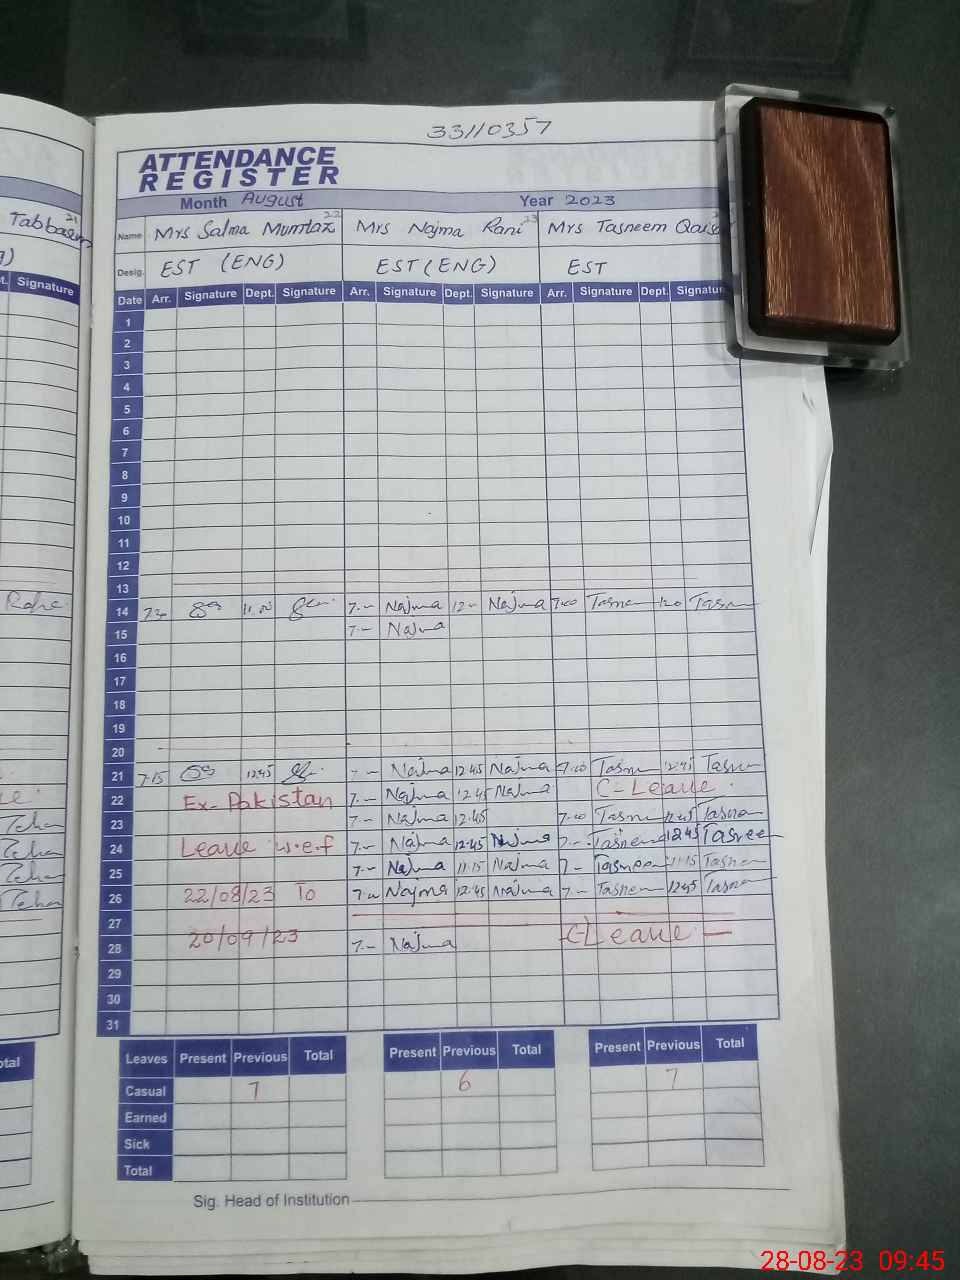 33110357
ATTENDANCE
REGISTER
Month August Year 2023
Tabbasem 21
Name Mrs Salma Mumtaz 22 Mrs Najma Rani 23 Mrs Tasneem
Desig. EST (ENG) EST (ENG) EST
Signature
Date Arr. Signature Dept. Signature Arr. Signature Dept. Signature Arr. Signature Dept. Signatur
1
2
3
4
5
6
7
8
9
10
11
12
13
14 7.- Najma 12- Najma 7.00
15 7.- Najma
16
17
18
19
20
21 7.15 12.45 7.- Najma 12.45 Najma 7.00
22 Ex-Pakistan 7.- Najma 12.45 Najma C-Leave.
23 7.- Najma 12.45 7.00 12.45
24 Leave w.e.f 7.- Najma 12.45 Najma 7.- Tasneem 12.45 Tasneem
25 7.- Najma 11.15 Najma 7.- Tasneem 11.15
26 22/08/23 To Najma 12.45 Najma 7.- 12.45
27
28 20/09/23 7.- Najma C-Leave
29
30
31
Leaves Present Previous Total Present Previous Total Present Previous Total
otal
Casual 7 6 7
Earned
Sick
Total
Sig. Head of Institution
28-08-23 09:45